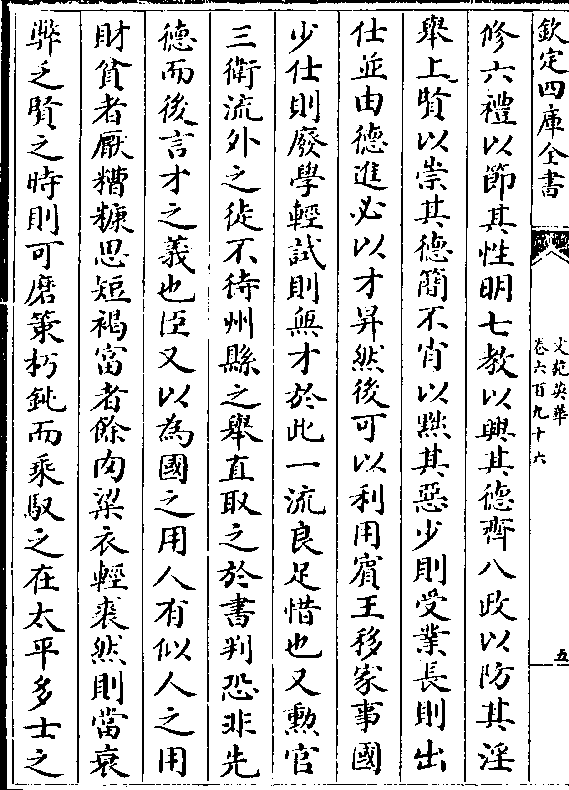 欽定四庫全書
文苑英華
卷六百九十六
五
修六禮以節其性明七教以興其德齊八政以防其淫
舉上賢以崇其德簡不肖以黜其惡少則受業長則出
仕並由德進必以才昇然後可以利用賓王移家事國
少仕則廢學輕試則無才於此一流良足惜也又勲官
三衛流外之徒不待州縣之舉直取之於書判恐非先
德而後言才之義也臣又以為國之用人有似人之用
財貧者厭糟糠思短褐富者餘肉粱衣輕裘然則當衰
弊乏賢之時則可磨策朽鈍而乗馭之在太平多士之